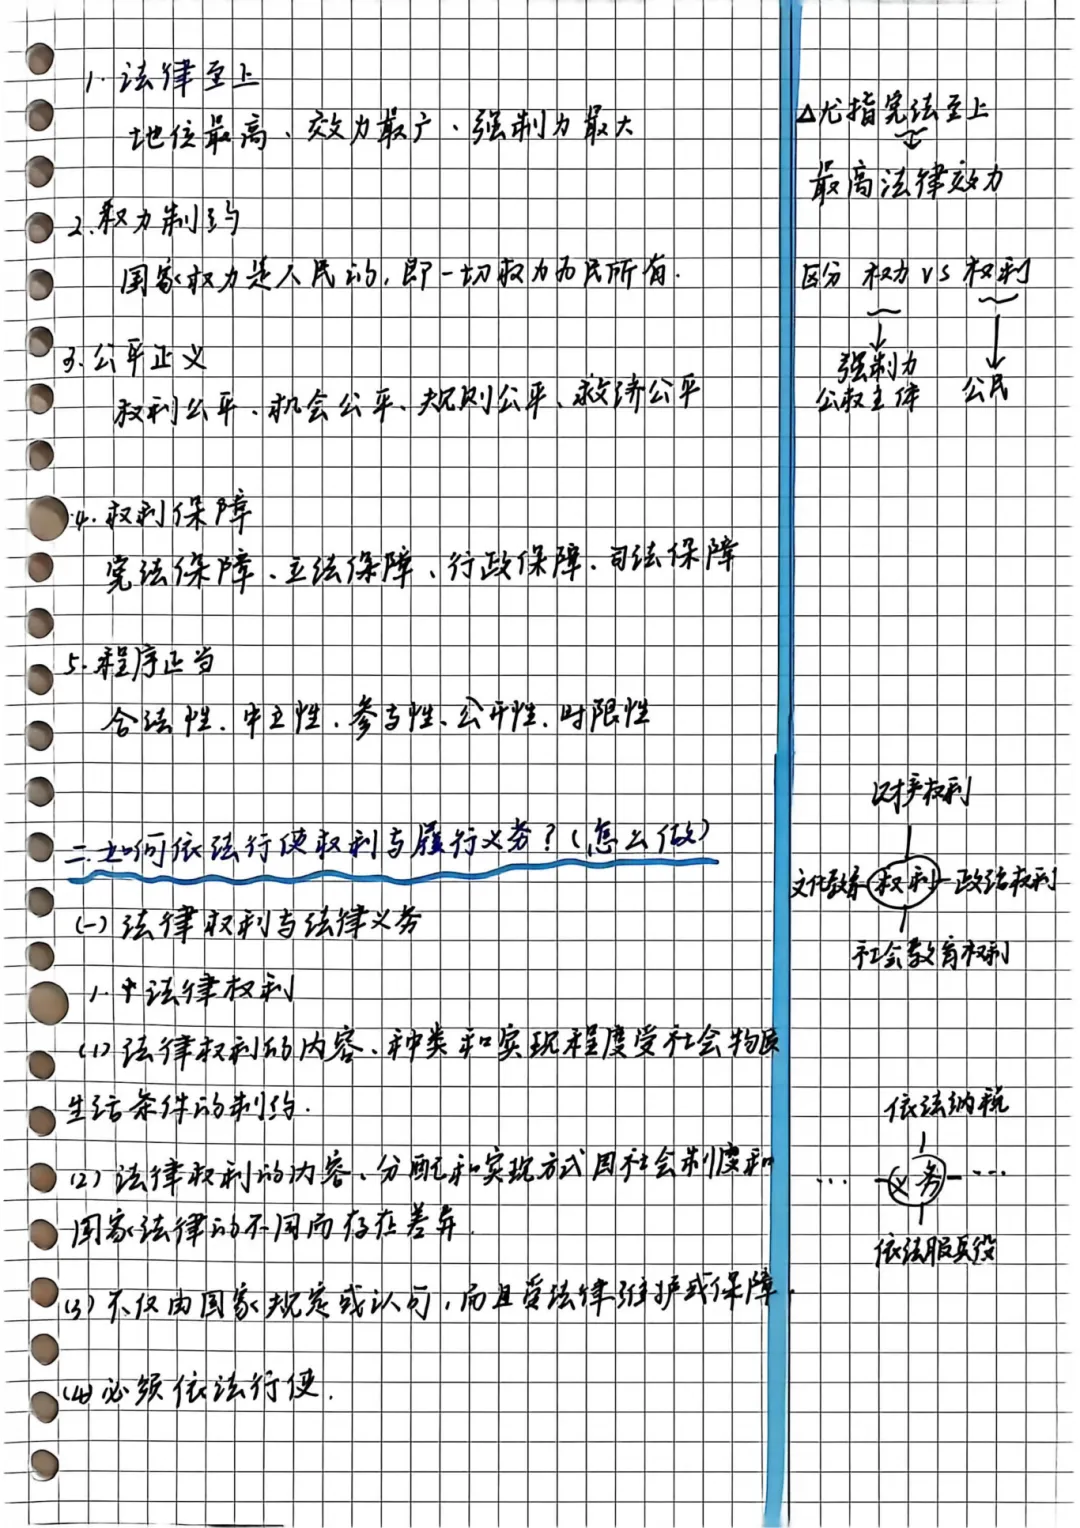 1. 法律至上
地位最高、效力最广、强制力最大
2. 权力制约
国家权力是人民的,即一切权力为民所有.
3. 公平正义
权利公平、机会公平、规则公平、救济公平
4. 权利保障
宪法保障、立法保障、行政保障、司法保障
5. 程序正当
合法性、中立性、参与性、公开性、时限性
二. 如何依法行使权利与履行义务?(怎么做)
(一) 法律权利与法律义务
1. 法律权利
(1) 法律权利的内容、种类和实现程度受社会物质
生活条件的制约.
(2) 法律权利的内容、分配和实现方式因社会制度和
国家法律的不同而存在差异.
(3) 不仅由国家规定或认可,而且受法律维护或保障.
(4) 必须依法行使.
△尤指宪法至上
最高法律效力
区分 权力 VS 权利
强制力
公权主体
公民
财产权利
文化教育 权利 政治权利
社会教育权利
依法纳税
... 义务 ...
依法服兵役